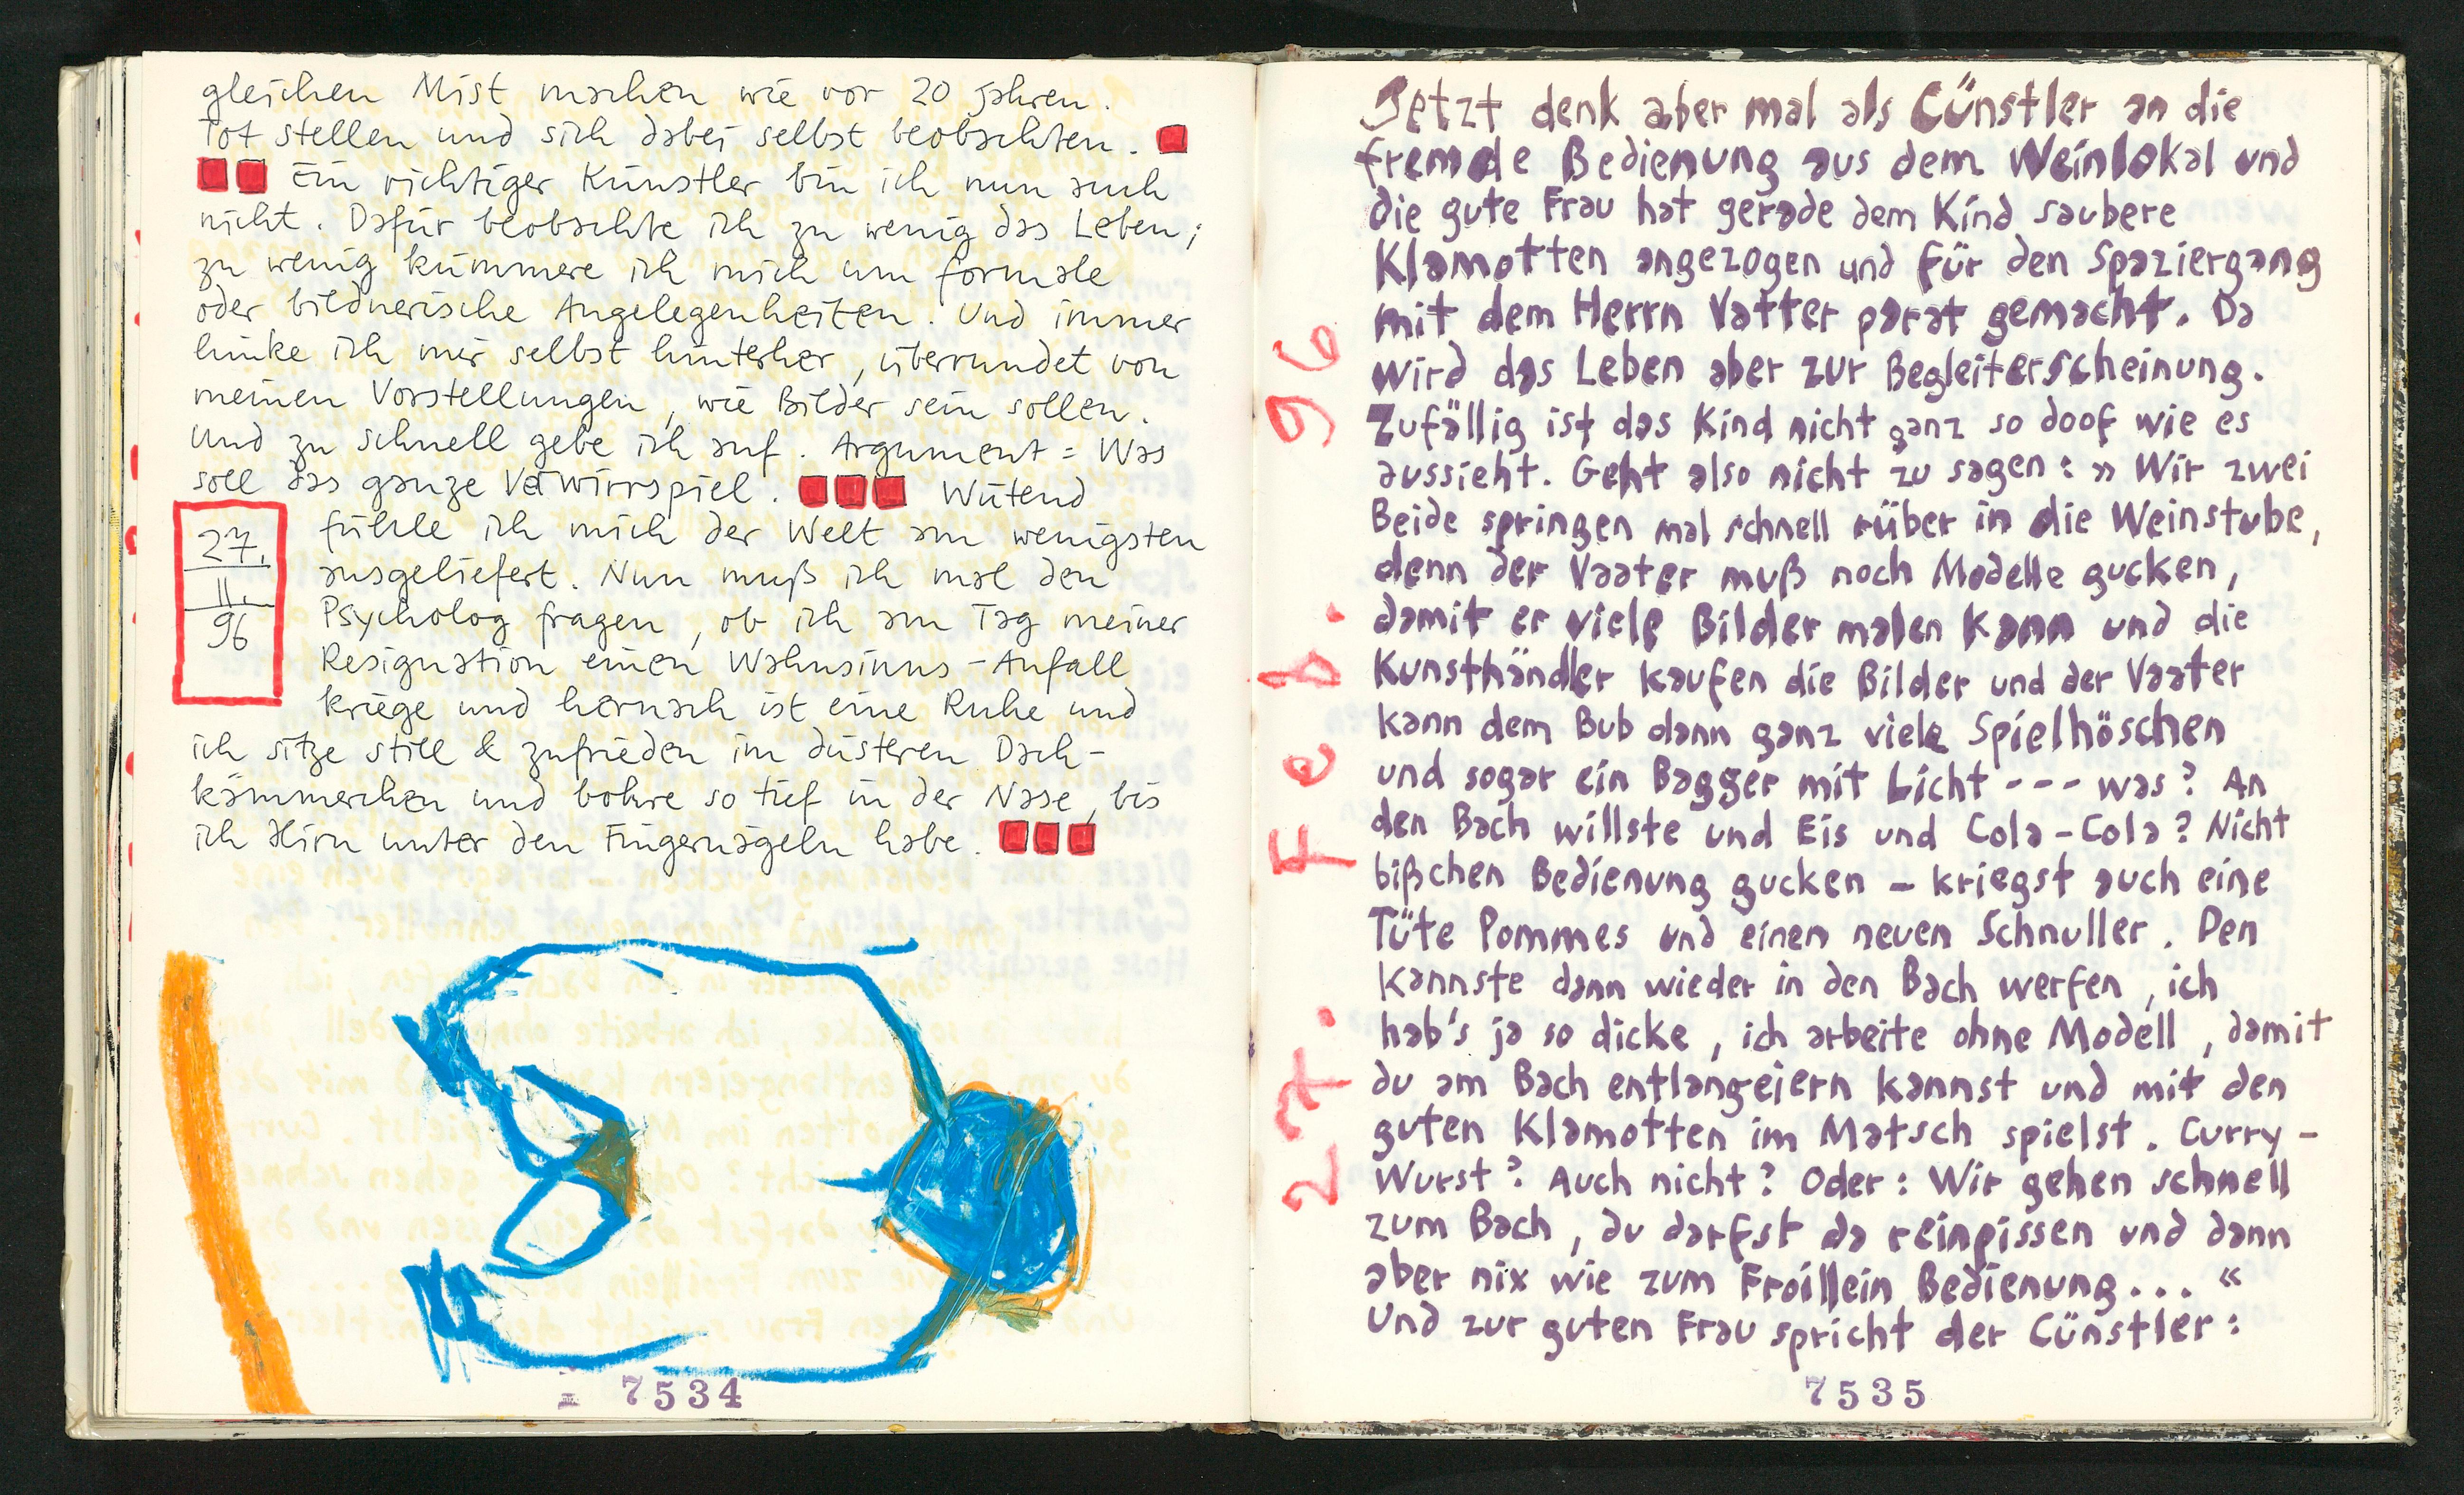 gleichen Mist machen wie vor 20 Jahren.
Tot stellen und sich dabei selbst beobachten.
Ein richtiger Künstler bin ich nun auch
nicht. Dafür beobachte ich zu wenig das Leben;
zu wenig kümmere ich mich um formale
oder bildnerische Angelegenheiten. Und immer
hinke ich mir selbst hinterher, überrundet von
meinen Vorstellungen, wie Bilder sein sollen.
Und zu schnell gebe ich auf. Argument = Was
soll das ganze Verwirrspiel. Wütend
fühle ich mich der Welt am wenigsten
ausgeliefert. Nun muß ich mal den
Psycholog fragen, ob ich am Tag meiner
Resignation einen Wahnsinns-Anfall
kriege und hernach ist eine Ruhe und
ich sitze still & zufrieden im düsteren Dach-
kämmerchen und bohre so tief in der Nase, bis
ich Hirn unter den Fingernägeln habe.
27.
II.
96
7534
27. Feb. 96
Jetzt denk aber mal als Cünstler an die
fremde Bedienung aus dem Weinlokal und
die gute Frau hat gerade dem Kind saubere
Klamotten angezogen und für den Spaziergang
mit dem Herrn Vatter parat gemacht. Da
wird das Leben aber zur Begleiterscheinung.
Zufällig ist das Kind nicht ganz so doof wie es
aussieht. Geht also nicht zu sagen: » Wir zwei
Beide springen mal schnell rüber in die Weinstube,
denn der Vaater muß noch Modelle gucken,
damit er viele Bilder malen kann und die
Kunsthändler kaufen die Bilder und der Vaater
kann dem Bub dann ganz viele Spielhöschen
und sogar ein Bagger mit Licht --- was? An
den Bach willste und Eis und Cola-Cola? Nicht
bißchen Bedienung gucken – kriegst auch eine
Tüte Pommes und einen neuen Schnuller. Den
kannste dann wieder in den Bach werfen, ich
hab's ja so dicke, ich arbeite ohne Modell, damit
du am Bach entlangeiern kannst und mit den
guten Klamotten im Matsch spielst. Curry-
Wurst? Auch nicht? Oder: Wir gehen schnell
zum Bach, du darfst da reinpissen und dann
aber nix wie zum Froillein Bedienung... «
Und zur guten Frau spricht der Cünstler:
7535